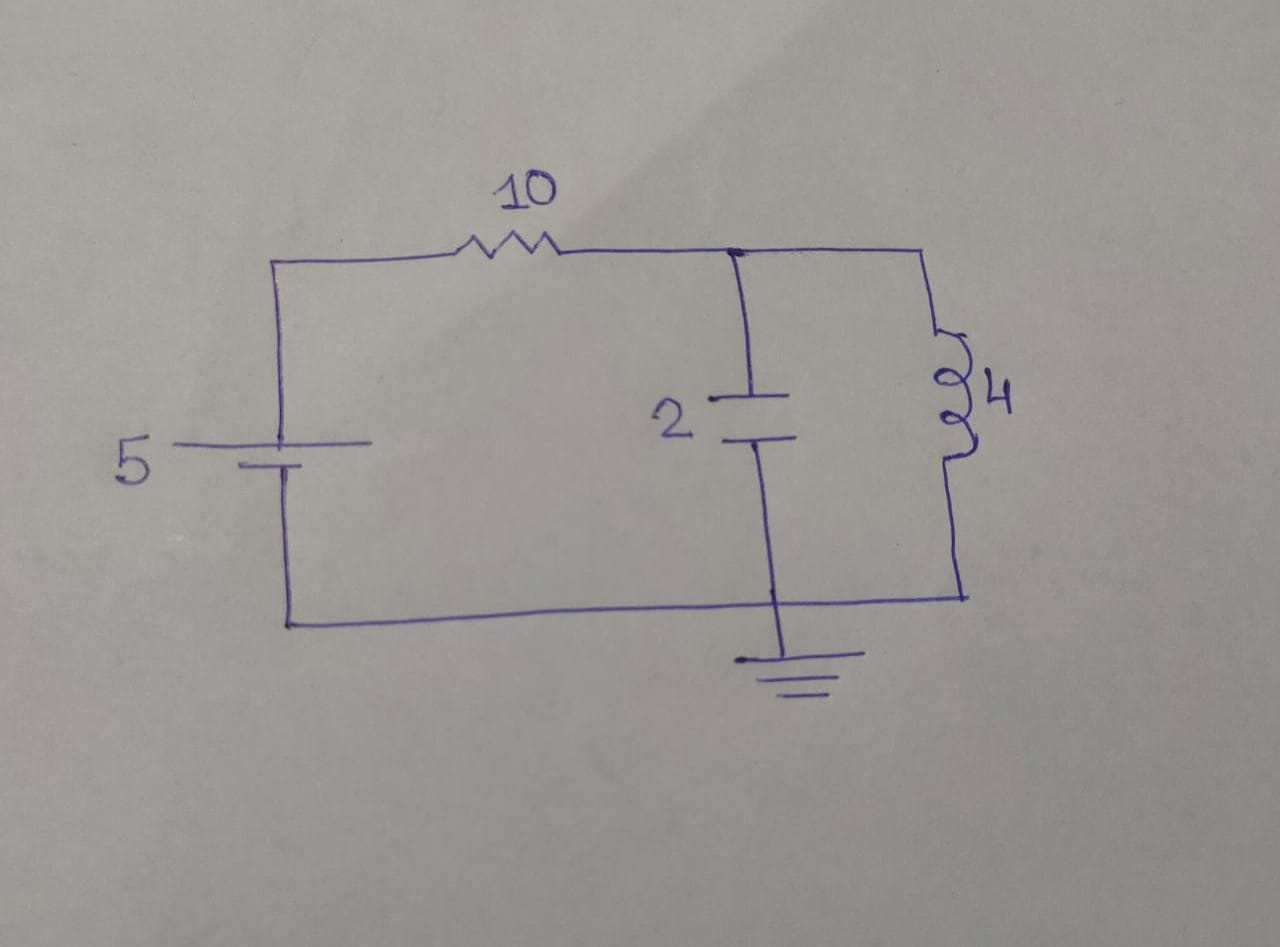 10
5
2
4